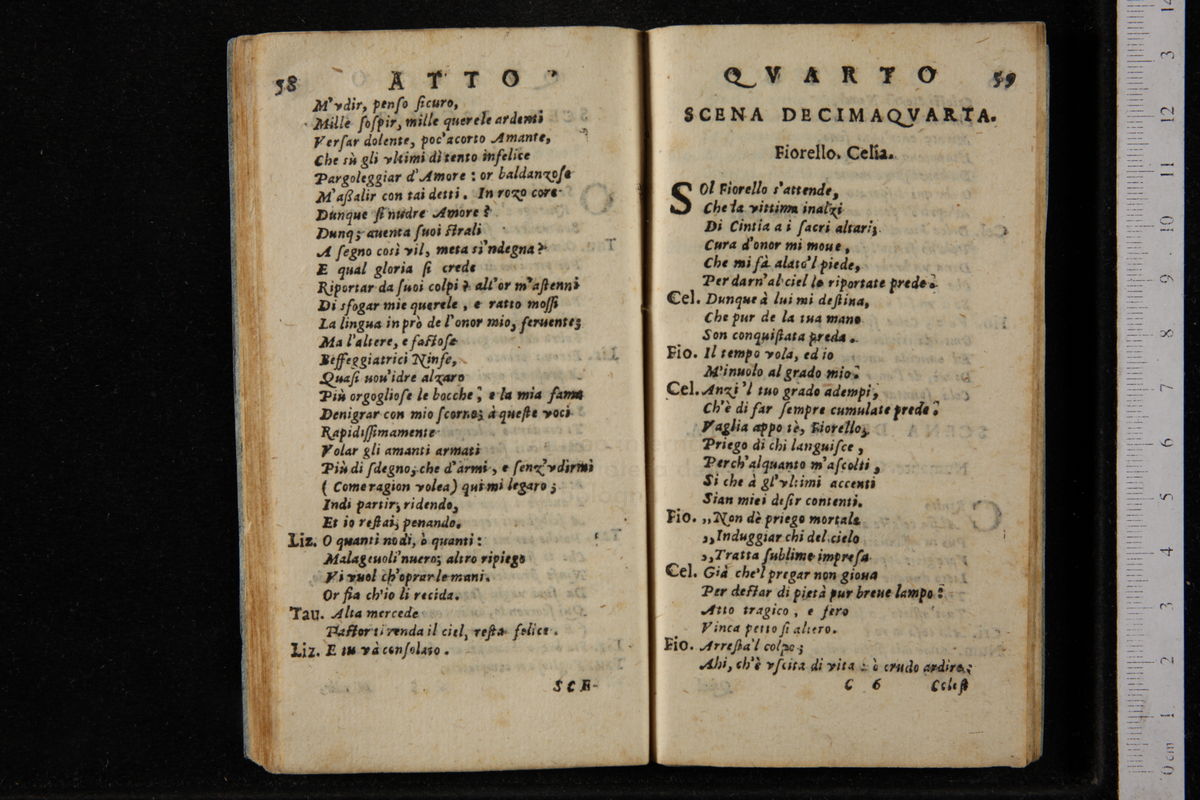 58 ATTO
M'vdir, penso sicuro,
Mille sospir, mille querele ardenti
Versar dolente, poc'acorto Amante,
Che sù gli vltimi dì tento infelice
Pargoleggiar d'Amore: or baldanzose
M'aßalir con tai detti. In rozo core
Dunque si nudre Amore?
Dunq; auenta suoi strali
A segno così vil, meta sì'ndegna?
E qual gloria si crede
Riportar da suoi colpi? all'or m'astenni
Di sfogar mie querele, e ratto mossi
La lingua in prò de l'onor mio, feruente;
Ma l'altere, e fastose
Beffeggiatrici Ninfe,
Quasi nou'idre alzaro
Più orgogliose le bocche; e la mia fama
Denigrar con mio scorno; à queste voci
Rapidissimamente
Volar gli amanti armati
Più di sdegno, che d'armi, e senz'vdirmi
(Come ragion volea) quì mi legaro;
Indi partir, ridendo,
Et io restai, penando.
Liz. O quanti nodi, ò quanti:
Malageuoli'nuero; altro ripiego
Vi vuol ch'oprar le mani.
Or sia ch'io li recida.
Tau. Alta mercede
Pastor ti renda il ciel, resta felice.
Liz. E tu và consolato.
SCE-
QVARTO 59
SCENA DECIMAQVARTA.
Fiorello. Celia.
SOl Fiorello s'attende,
Che la vittima inalzi
Di Cintia a i sacri altari;
Cura d'onor mi moue,
Che mi fà alato'l piede,
Per darn'al ciel le riportate prede.
Cel. Dunque à lui mi destina,
Che pur de la tua mano
Son conquistata preda.
Fio. Il tempo vola, ed io
M'inuolo al grado mio.
Cel. Anzi'l tuo grado adempi,
Ch'è di far sempre cumulate prede.
Vaglia appo tè, Fiorello,
Priego di chi languisce,
Perch'alquanto m'ascolti,
Si che à gl'vltimi accenti
Sian miei desir contenti.
Fio. „Non dè priego mortale
„Induggiar chi del cielo
„Tratta sublime impresa
Cel. Già che'l pregar non gioua
Per destar di pietà pur breue lampo:
Atto tragico, e fero
Vinca petto sì altero.
Fio. Arresta'l colpo;
Ahi, ch'è vscita di vita: ò crudo ardire;
C 6 Celest